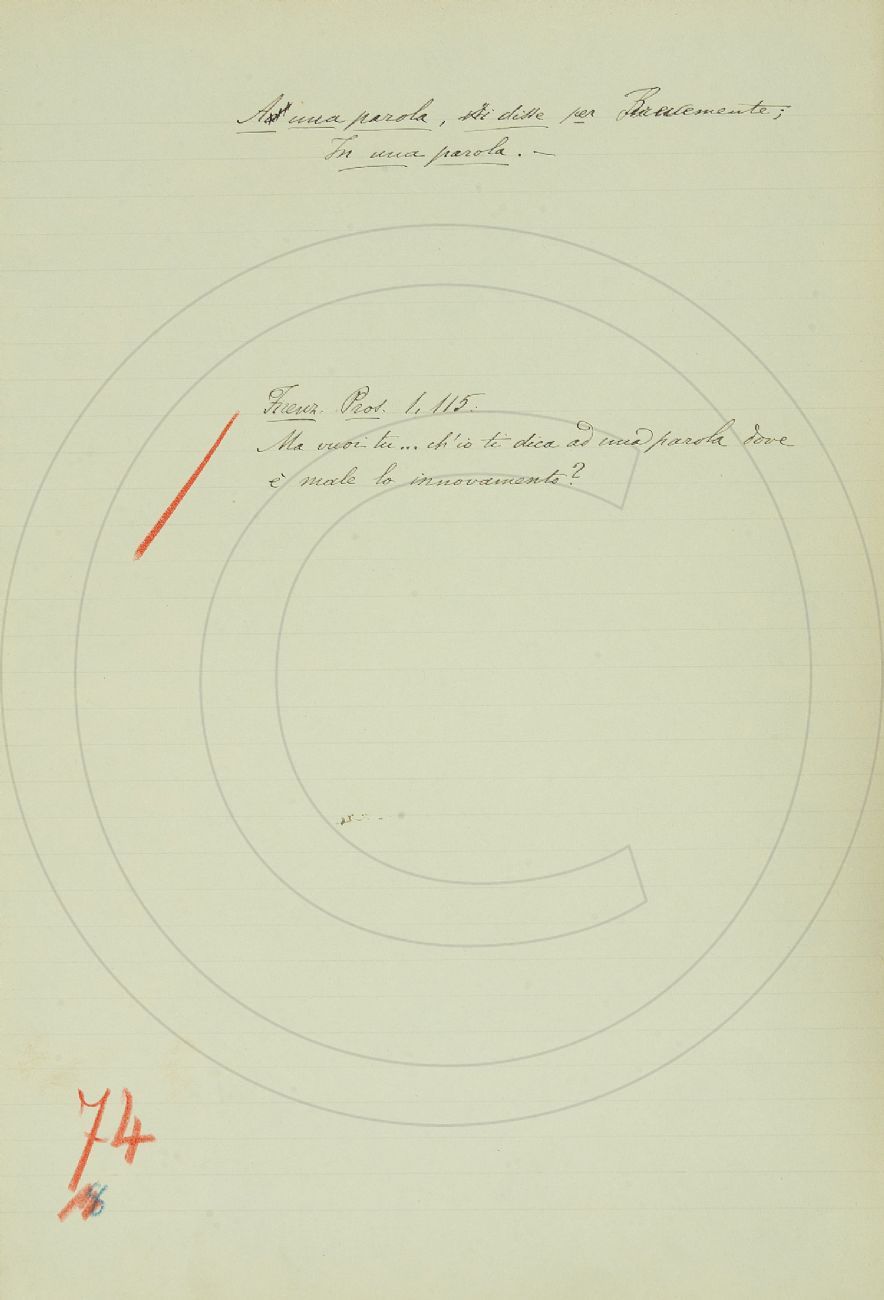 Ad una parola, si disse per Brevemente;
In una parola. –
Firenz. Pros. 1, 115.
Ma vuoi tu... ch'io ti dica ad una parola dove
è male lo innovamento?
74